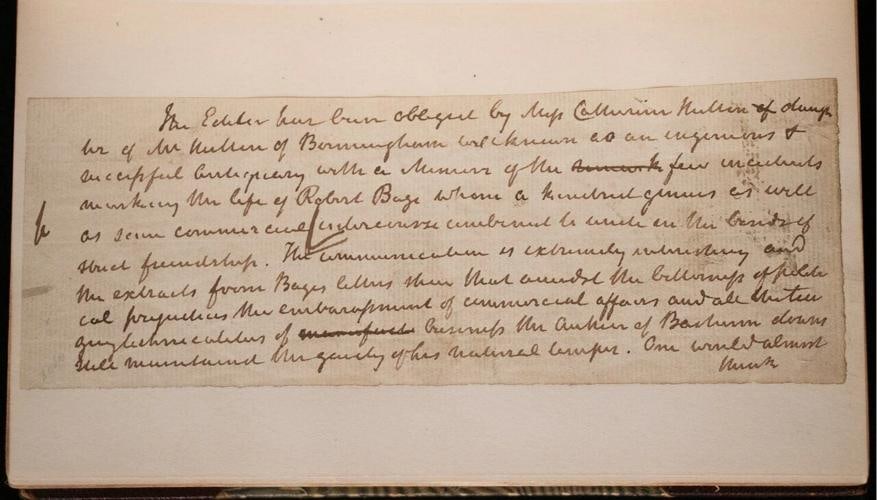 The Editor has been obliged by Miss Catherine Hutton of daugh
ter of Mr Hutton of Bormingham well known as an ingenious &
successful antiquary with a Memoir of the few incidents
marking the life of Robert Bage whom a kindred genius as well
as some commercial intercourse combined to unite in the bonds of
strict friendship. The communication is extremely interesting and
the extracts from Bages letters shew that amidst the bitterness of politi
cal prejudices the embarassment of commercial affairs and all the tea
zing technicalities of business the author of Barham downs
still maintained the gaiety of his natural temper. One would almost
think